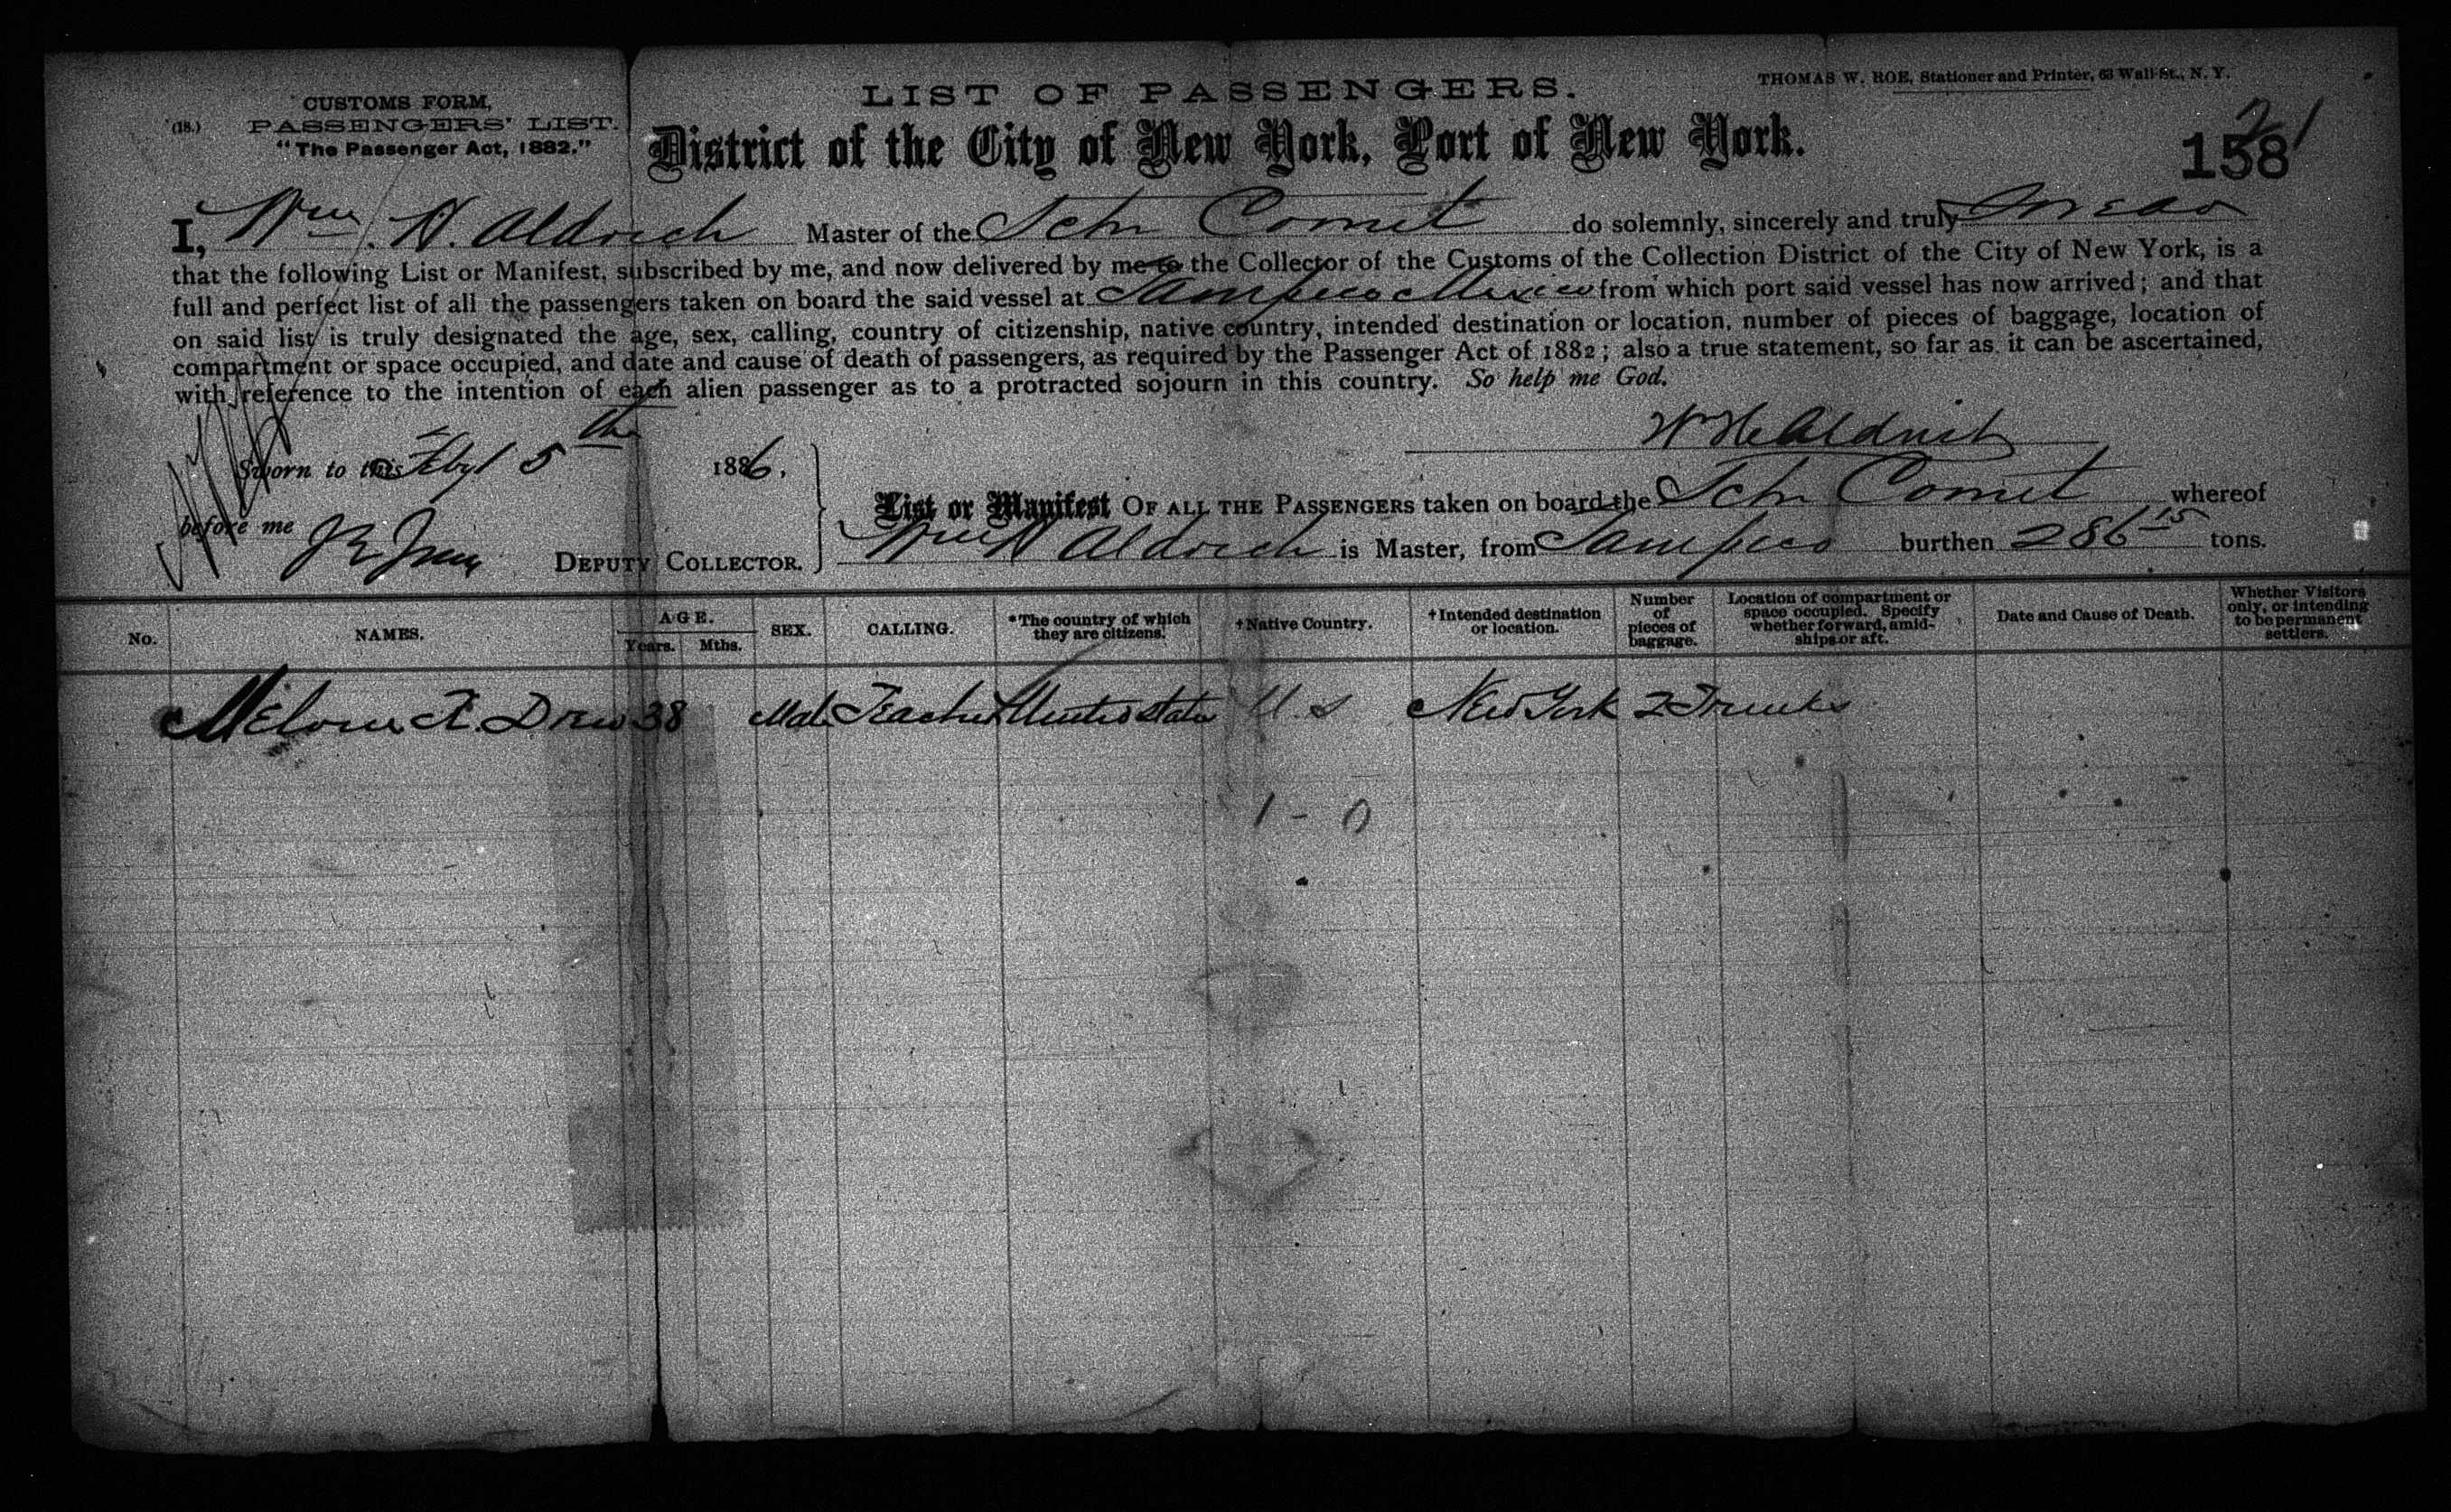 LIST OF PASSENGERS.
THOMAS W. ROE, Stationer and Printer, 63 Wall St., N. Y.
CUSTOMS FORM,
(18.) PASSENGERS' LIST.
"The Passenger Act, 1882."
District of the City of New York, Port of New York.
158
I, Wm. H. Aldrich Master of the Schr Comet do solemnly, sincerely and truly Swear
that the following List or Manifest, subscribed by me, and now delivered by me to the Collector of the Customs of the Collection District of the City of New York, is a
full and perfect list of all the passengers taken on board the said vessel at Tampico Mexico from which port said vessel has now arrived; and that
on said list is truly designated the age, sex, calling, country of citizenship, native country, intended destination or location, number of pieces of baggage, location of
compartment or space occupied, and date and cause of death of passengers, as required by the Passenger Act of 1882; also a true statement, so far as it can be ascertained,
with reference to the intention of each alien passenger as to a protracted sojourn in this country. So help me God.
W H Aldrich
Sworn to this Feby 5th 1886,
List or Manifest OF ALL THE PASSENGERS taken on board the Schr Comet whereof
before me DEPUTY COLLECTOR.
Wm H Aldrich is Master, from Tampico burthen 286 15 tons.
No. NAMES. AGE. Years. Mths. SEX. CALLING. *The country of which they are citizens. †Native Country. †Intended destination or location. Number of pieces of baggage. Location of compartment or space occupied. Specify whether forward, amidships or aft. Date and Cause of Death. Whether Visitors only, or intending to be permanent settlers.
Drew 38 Male Teacher United States U. S New York 2 Trunks
1 - 0